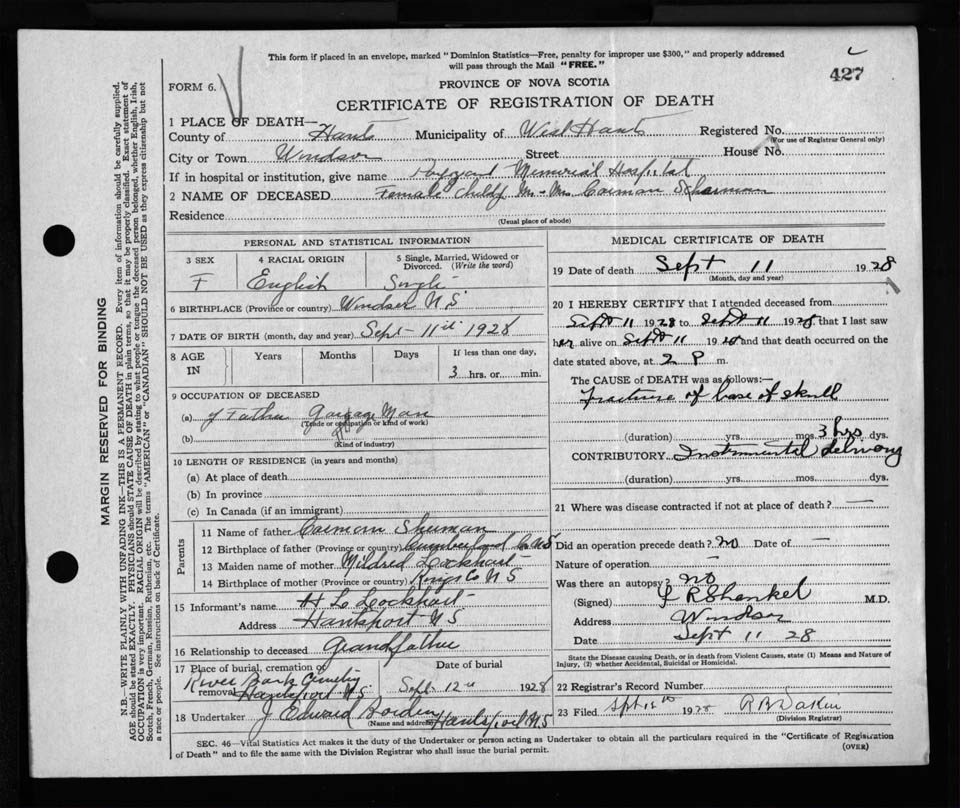 This form if placed in an envelope, marked "Dominion Statistics—Free, penalty for improper use $300," and properly addressed
will pass through the Mail "FREE."
427
FORM 6.
PROVINCE OF NOVA SCOTIA
CERTIFICATE OF REGISTRATION OF DEATH
1 PLACE OF DEATH—
County of Hants Municipality of West Hants Registered No.
(For use of Registrar General only)
City or Town Windsor Street House No.
If in hospital or institution, give name Payzant Memorial Hospital
2 NAME OF DECEASED Female Child of Mr - Mrs Coleman Sherman
Residence
(Usual place of abode)
PERSONAL AND STATISTICAL INFORMATION
3 SEX 4 RACIAL ORIGIN 5 Single, Married, Widowed or Divorced. (Write the word)
F English Single
6 BIRTHPLACE (Province or country) Windsor N S
7 DATE OF BIRTH (month, day and year) Sept - 11th 1928
8 AGE IN Years Months Days If less than one day,
3 hrs. or min.
9 OCCUPATION OF DECEASED
(a) of Father Garage Man
(Trade or occupation or kind of work)
(b)
(Kind of industry)
10 LENGTH OF RESIDENCE (in years and months)
(a) At place of death
(b) In province
(c) In Canada (if an immigrant)
Parents
11 Name of father Sherman
12 Birthplace of father (Province or country) Cumberland Co N S
13 Maiden name of mother Mildred Lockhart
14 Birthplace of mother (Province or country) Kings Co N S
15 Informant's name H L Lockhart
Address Hantsport N S
16 Relationship to deceased Grandfather
17 Place of burial, cremation or removal Date of burial
River Bank Cemetery
Hantsport N.S. Sept 12th 1928
18 Undertaker J Edward Borden Hantsport N S
(Name and address)
MEDICAL CERTIFICATE OF DEATH
19 Date of death Sept 11 1928
(Month, day and year)
20 I HEREBY CERTIFY that I attended deceased from
Sept 11 1928 to Sept 11 1928 that I last saw
her alive on Sept 11 1928 and that death occurred on the
date stated above, at 2 P m.
The CAUSE of DEATH was as follows:—
Fracture of base of skull
(duration) yrs. mos. 3 hrs dys.
CONTRIBUTORY Instrumental delivery
(duration) yrs. mos. dys.
21 Where was disease contracted if not at place of death? —
Did an operation precede death? no Date of —
Nature of operation —
Was there an autopsy? no
(Signed) R Shankel M.D.
Address Windsor
Date Sept 11 28
State the Disease causing Death, or in death from Violent Causes, state (1) Means and Nature of
Injury, (2) whether Accidental, Suicidal or Homicidal.
22 Registrar's Record Number
23 Filed Sept 1928 R B Dakin
(Division Registrar)
SEC. 46—Vital Statistics Act makes it the duty of the Undertaker or person acting as Undertaker to obtain all the particulars required in the "Certificate of Registration
of Death" and to file the same with the Division Registrar who shall issue the burial permit.
(OVER)
MARGIN RESERVED FOR BINDING
N.B.—WRITE PLAINLY WITH UNFADING INK—THIS IS A PERMANENT RECORD. Every item of information should be carefully supplied.
AGE should be stated EXACTLY. PHYSICIANS should STATE CAUSE OF DEATH in plain terms, so that it may be properly classified. Exact statement of
OCCUPATION is very important. RACIAL ORIGIN will be described by stating to what people or tongue the deceased person belonged, whether English, Irish,
Scotch, French, German, Russian, Ruthenian, etc. The terms "AMERICAN" or "CANADIAN" SHOULD NOT BE USED as they express citizenship but not
a race or people. See instructions on back of Certificate.